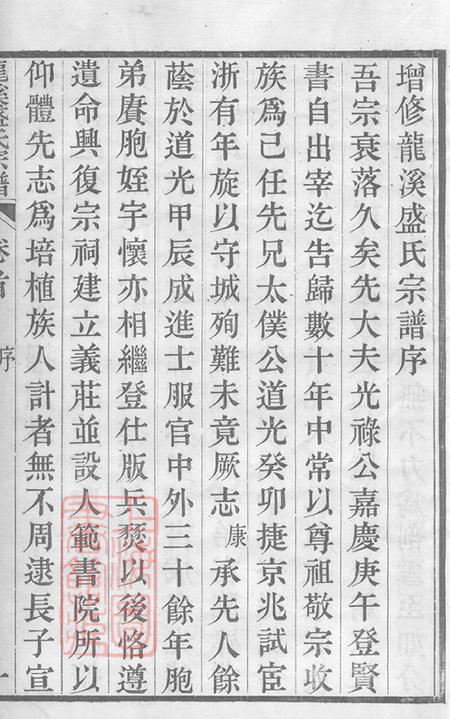 增修龍溪盛氏宗譜序
吾宗衰落久矣先大夫光祿公嘉慶庚午登賢
書自出宰迄告歸數十年中常以尊祖敬宗收
族爲己任先兄太僕公道光癸卯捷京兆試宦
浙有年旋以守城殉難未竟厥志康承先人餘
蔭於道光甲辰成進士服官中外三十餘年胞
弟賡胞姪宇懷亦相繼登仕版兵燹以後恪遵
遺命興復宗祠建立義莊並設人範書院所以
仰體先志爲培植族人計者無不周逮長子宣
龍溪盛氏宗譜 卷首 序 一